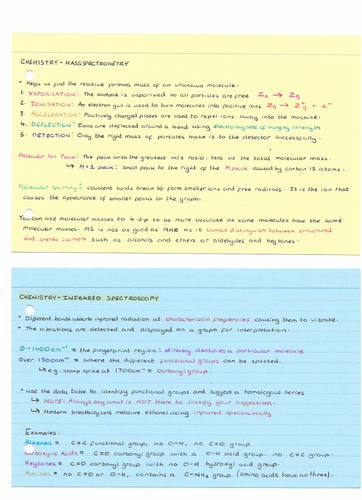 CHEMISTRY - MASS SPECTROMETRY
* Helps us find the relative formula mass of an unknown molecule.
1. VAPORISATION: The sample is vaporised so all particles are free Zs → Zg
2. IONISATION: An electron gun is used to burn molecules into positive ions Zg → Z+g + e-
3. ACCELERATION: Positively charged plates are used to repel ions away into the machine.
4. DEFLECTION: Ions are deflected around a bend using electromagnets of varying strength
5. DETECTION: Only the right mass of particles make it to the detector successfully.
Molecular Ion Peak: The peak with the greatest m/z ratio: tells us the total molecular mass.
↳ M+1 peak: small peak to the right of the M peak caused by carbon 13 atoms.
Molecular Splitting: covalent bonds break to form smaller ions and free radicals. It is the ion that
causes the appearance of smaller peaks on the graph.
You can use molecular masses to 4 d.p to be more accurate as some molecules have the same
molecular masses. MS is not as good as NMR as it cannot distinguish between structural
and stereo isomers such as alcohols and ethers or aldehydes and ketones.
CHEMISTRY - INFRARED SPECTROSCOPY
* Different bonds absorb infrared radiation at characteristic frequencies causing them to vibrate.
* The vibrations are detected and displayed on a graph for interpretation.
0-1400cm-1 = the fingerprint region: directly identifies a particular molecule
Over 1500cm-1 = where the different functional groups can be spotted.
↳ e.g. sharp spike at 1700cm-1 = carbonyl group.
* Use the data table to identify functional groups and suggest a homologous series
↳ NOTE: Always say what is NOT there to justify your suggestion.
↳ Modern breathalysers measure ethanol using infrared spectroscopy
Examples:
Alkenes = C=C functional group, no O-H, no C=O group
Carboxylic Acids = C=O carbonyl group with a O-H acid group. no C=C group.
Ketones = C=O carbonyl group with no O-H hydroxyl acid group.
Amines = no C=O or O-H, contains a C-NH2 group (amino acids have all three).